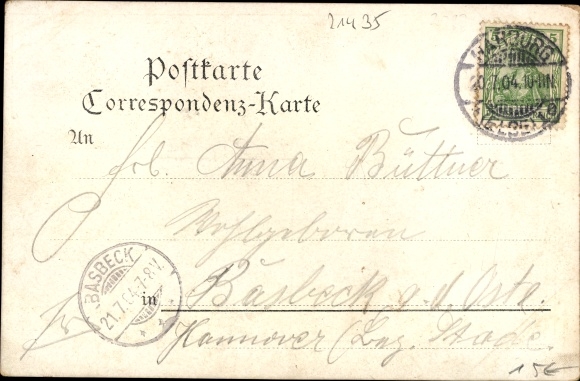 21435
5
HARBURG
.7.04.10-11N.
(ELBE)
Postkarte
Correspondenz-Karte
An
Frl. Anna Büttner
Wohlgeboren
BASBECK
21.7.04.7-8V.
in Basbeck a. d. Oste.
Hannover (Bez. Stade.
15€